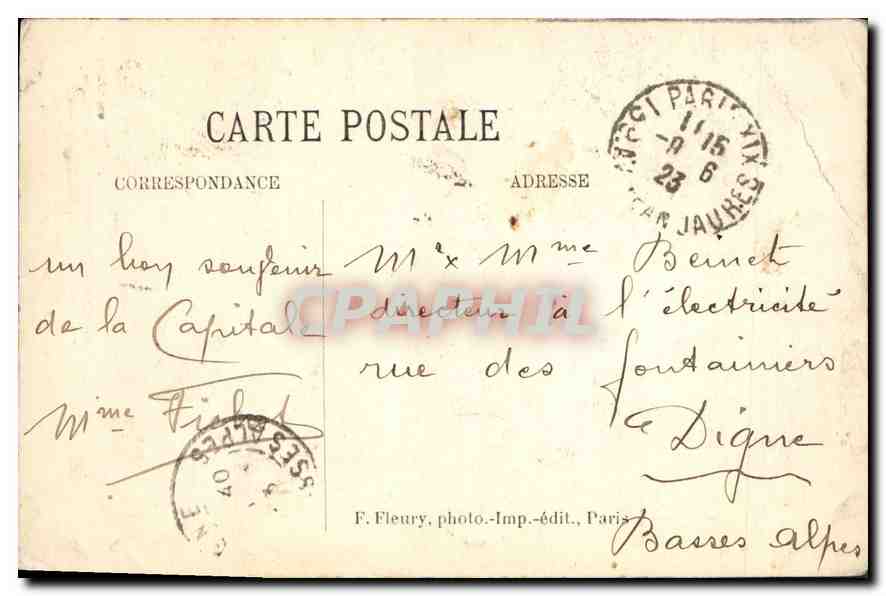 CARTE POSTALE
CORRESPONDANCE
ADRESSE
PARIS XIX
11 15
-8 6
23
JEAN JAURES
un bon souvenir
de la Capitale
Mme Fichet
Mr x Mme Beinet
directeur à l'électricité
rue des fontainiers
Digne
Basses Alpes
BASSES ALPES
F. Fleury, photo.-Imp.-édit., Paris
CPAPHIL